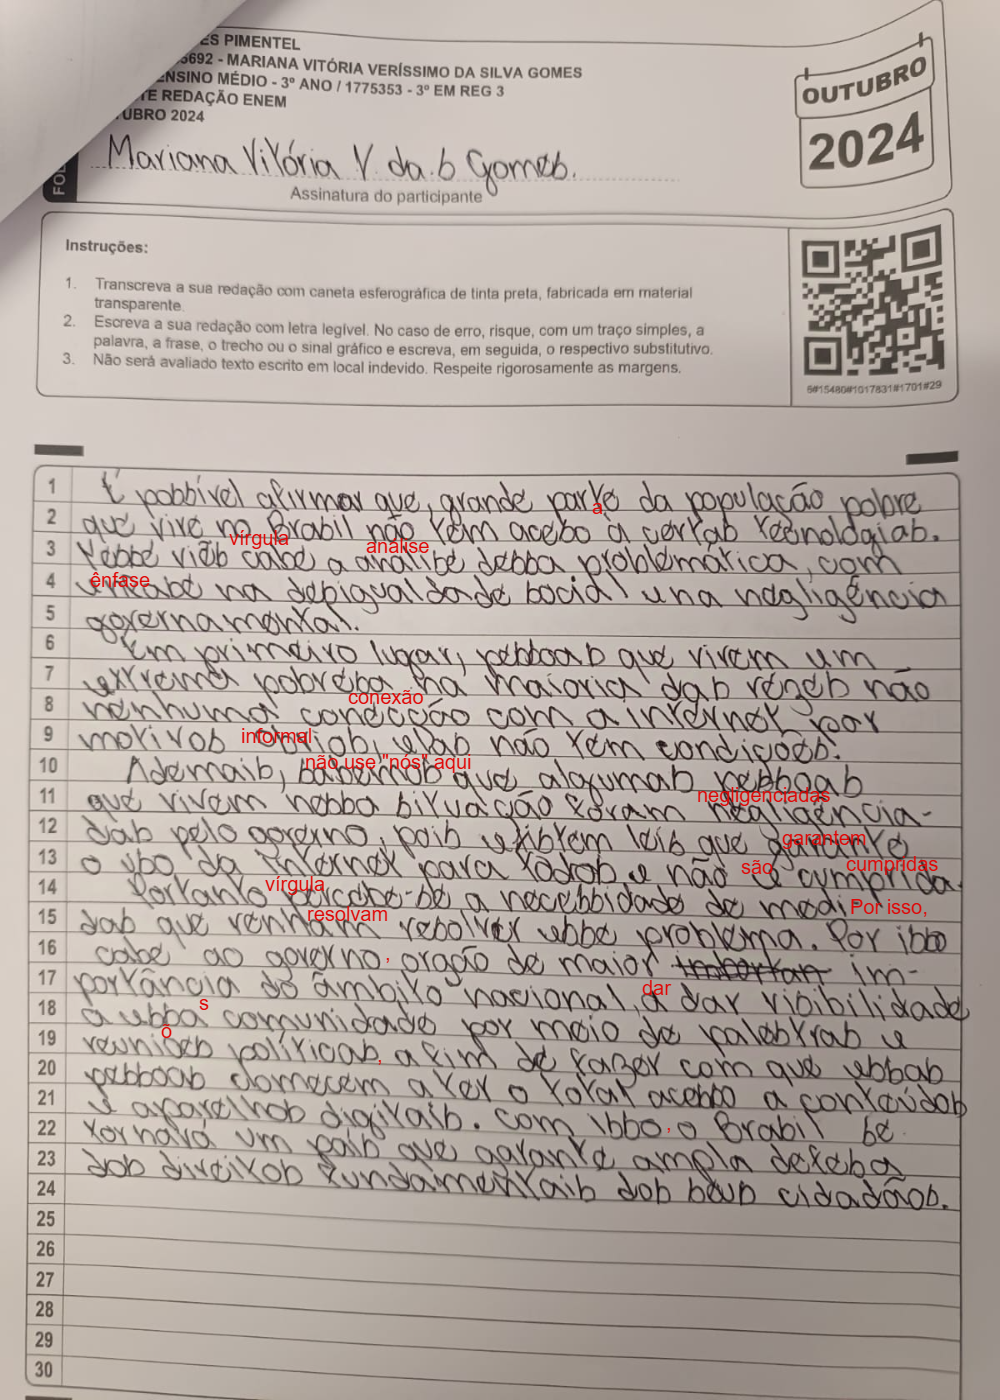 ES PIMENTEL
5692 - MARIANA VITÓRIA VERÍSSIMO DA SILVA GOMES
ENSINO MÉDIO - 3º ANO / 1775353 - 3º EM REG 3
TE REDAÇÃO ENEM
UBRO 2024
OUTUBRO
2024
Mariana Vitória V. da. S Gomes.
FOL
Assinatura do participante
Instruções:
1. Transcreva a sua redação com caneta esferográfica de tinta preta, fabricada em material
transparente.
2. Escreva a sua redação com letra legível. No caso de erro, risque, com um traço simples, a
palavra, a frase, o trecho ou o sinal gráfico e escreva, em seguida, o respectivo substitutivo.
3. Não será avaliado texto escrito em local indevido. Respeite rigorosamente as margens.
6#15480#1017831#1701#29
1 É possível afirmar que, grande parte da população pobre
a
2 que vive no Brasil não têm acesso à certas tecnologias.
vírgula análise
3 Nesse viés cabe a análise dessa problemática, com
ênfase
4 enfase na desigualdade social e na negligência
5 governamental.
6 Em primeiro lugar, pessoas que vivem em
7 extrema pobreza na maioria das vezes não
conexão
8 nenhuma condição com a internet por
informal
9 motivos óbvios, elas não têm condições!
não use "nós" aqui
10 Ademais, sabemos que algumas pessoas
negligenciadas
11 que vivem nessa situação foram negligência-
garantem
12 das pelo governo, pois existem leis que garante
são cumpridas
13 o uso da internet para todos e não é cumprida.
vírgula
14 Portanto percebe-se a necessidade de medi-
Por isso,
resolvam
15 das que venham resolver esse problema. Por isso
16 cabe ao governo, orgão de maior importan im-
dar
17 portância do âmbito nacional, a dar visibilidade
s
18 a essa comunidade por meio de palestras e
õ
19 reuniões políticas, a fim de fazer com que essas
20 pessoas comecem a ter o total acesso a conteúdos
21 e aparelhos digitais. Com isso, o Brasil se
22 tornará um país que garante ampla defesa
23 dos direitos fundamentais dos seus cidadãos.
24
25
26
27
28
29
30